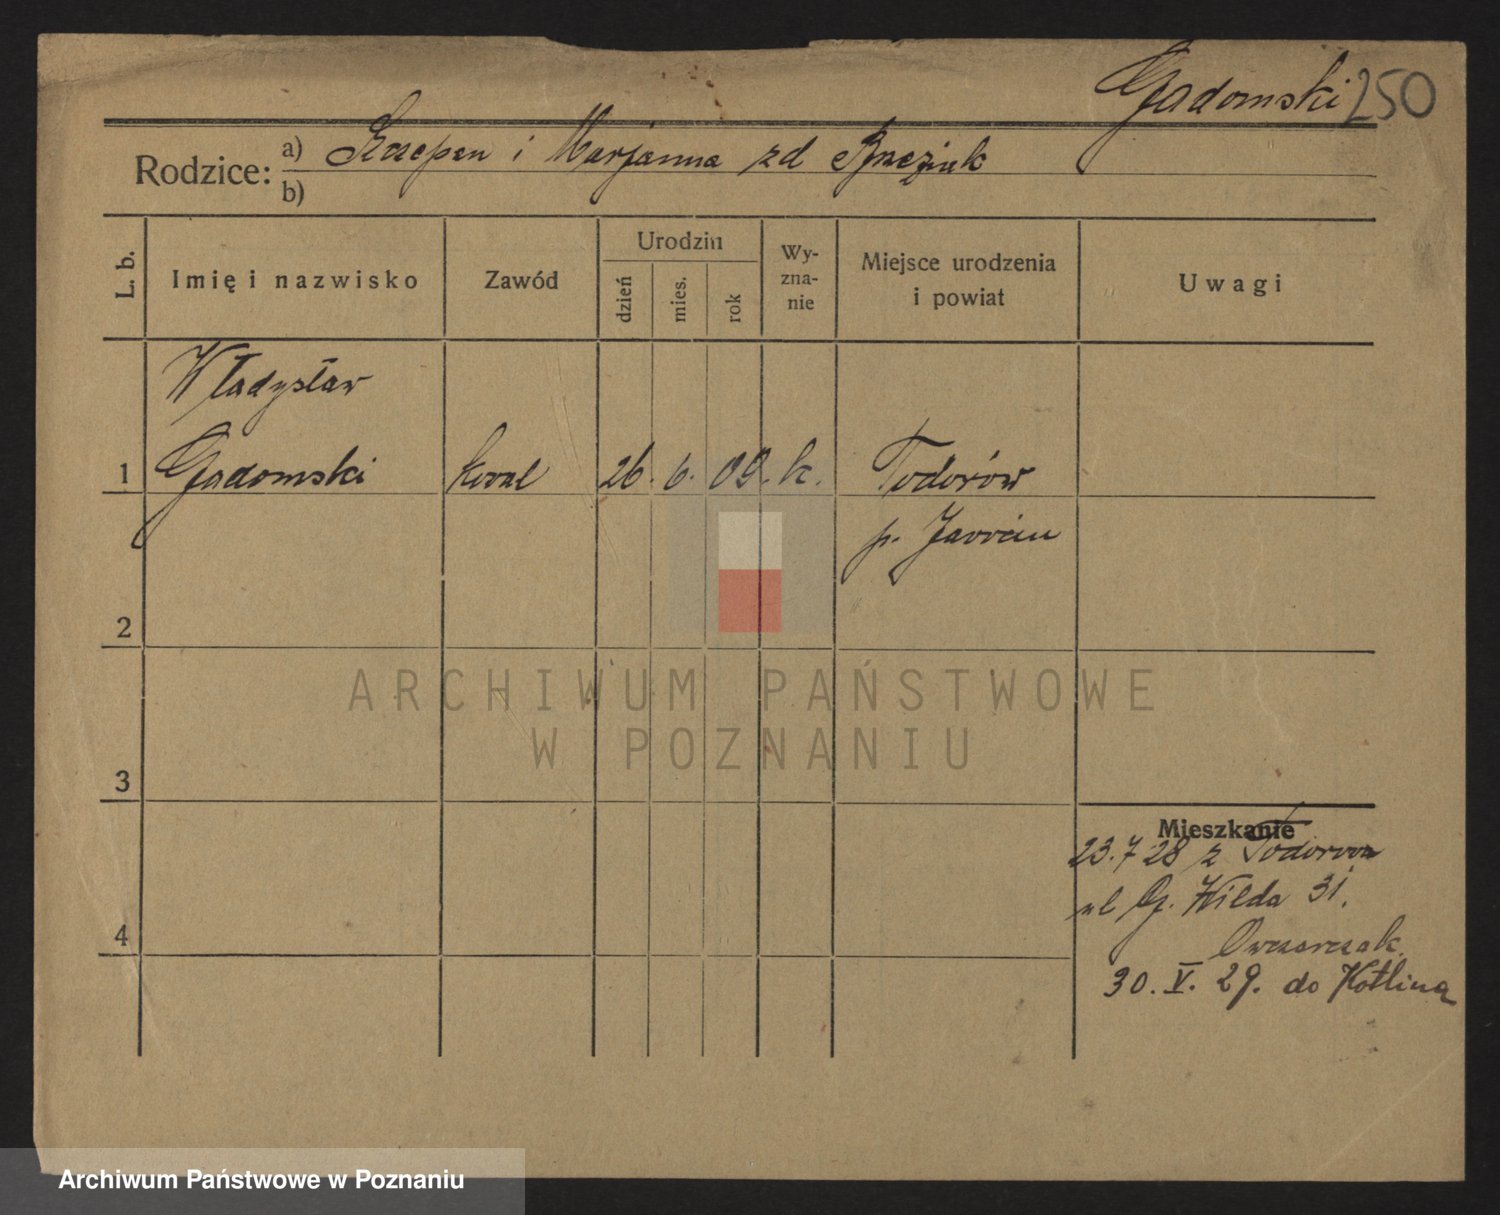 Gadomski 250
Rodzice: a) Szczepan i Marjanna zd
b)
L. b.
Imię i nazwisko
Zawód
Urodzin
dzień
mies.
rok
Wy-
zna-
nie
Miejsce urodzenia
i powiat
Uwagi
Władysław
1 Gadomski kowal 26. 6. 09. k. Todorów
p.
2
3
4
Mieszkanie
23.7 28 z
ul G. Wilda 31.
Owczarczak
30. V. 29. do Kotlina
ARCHIWUM PAŃSTWOWE
W POZNANIU
Archiwum Państwowe w Poznaniu